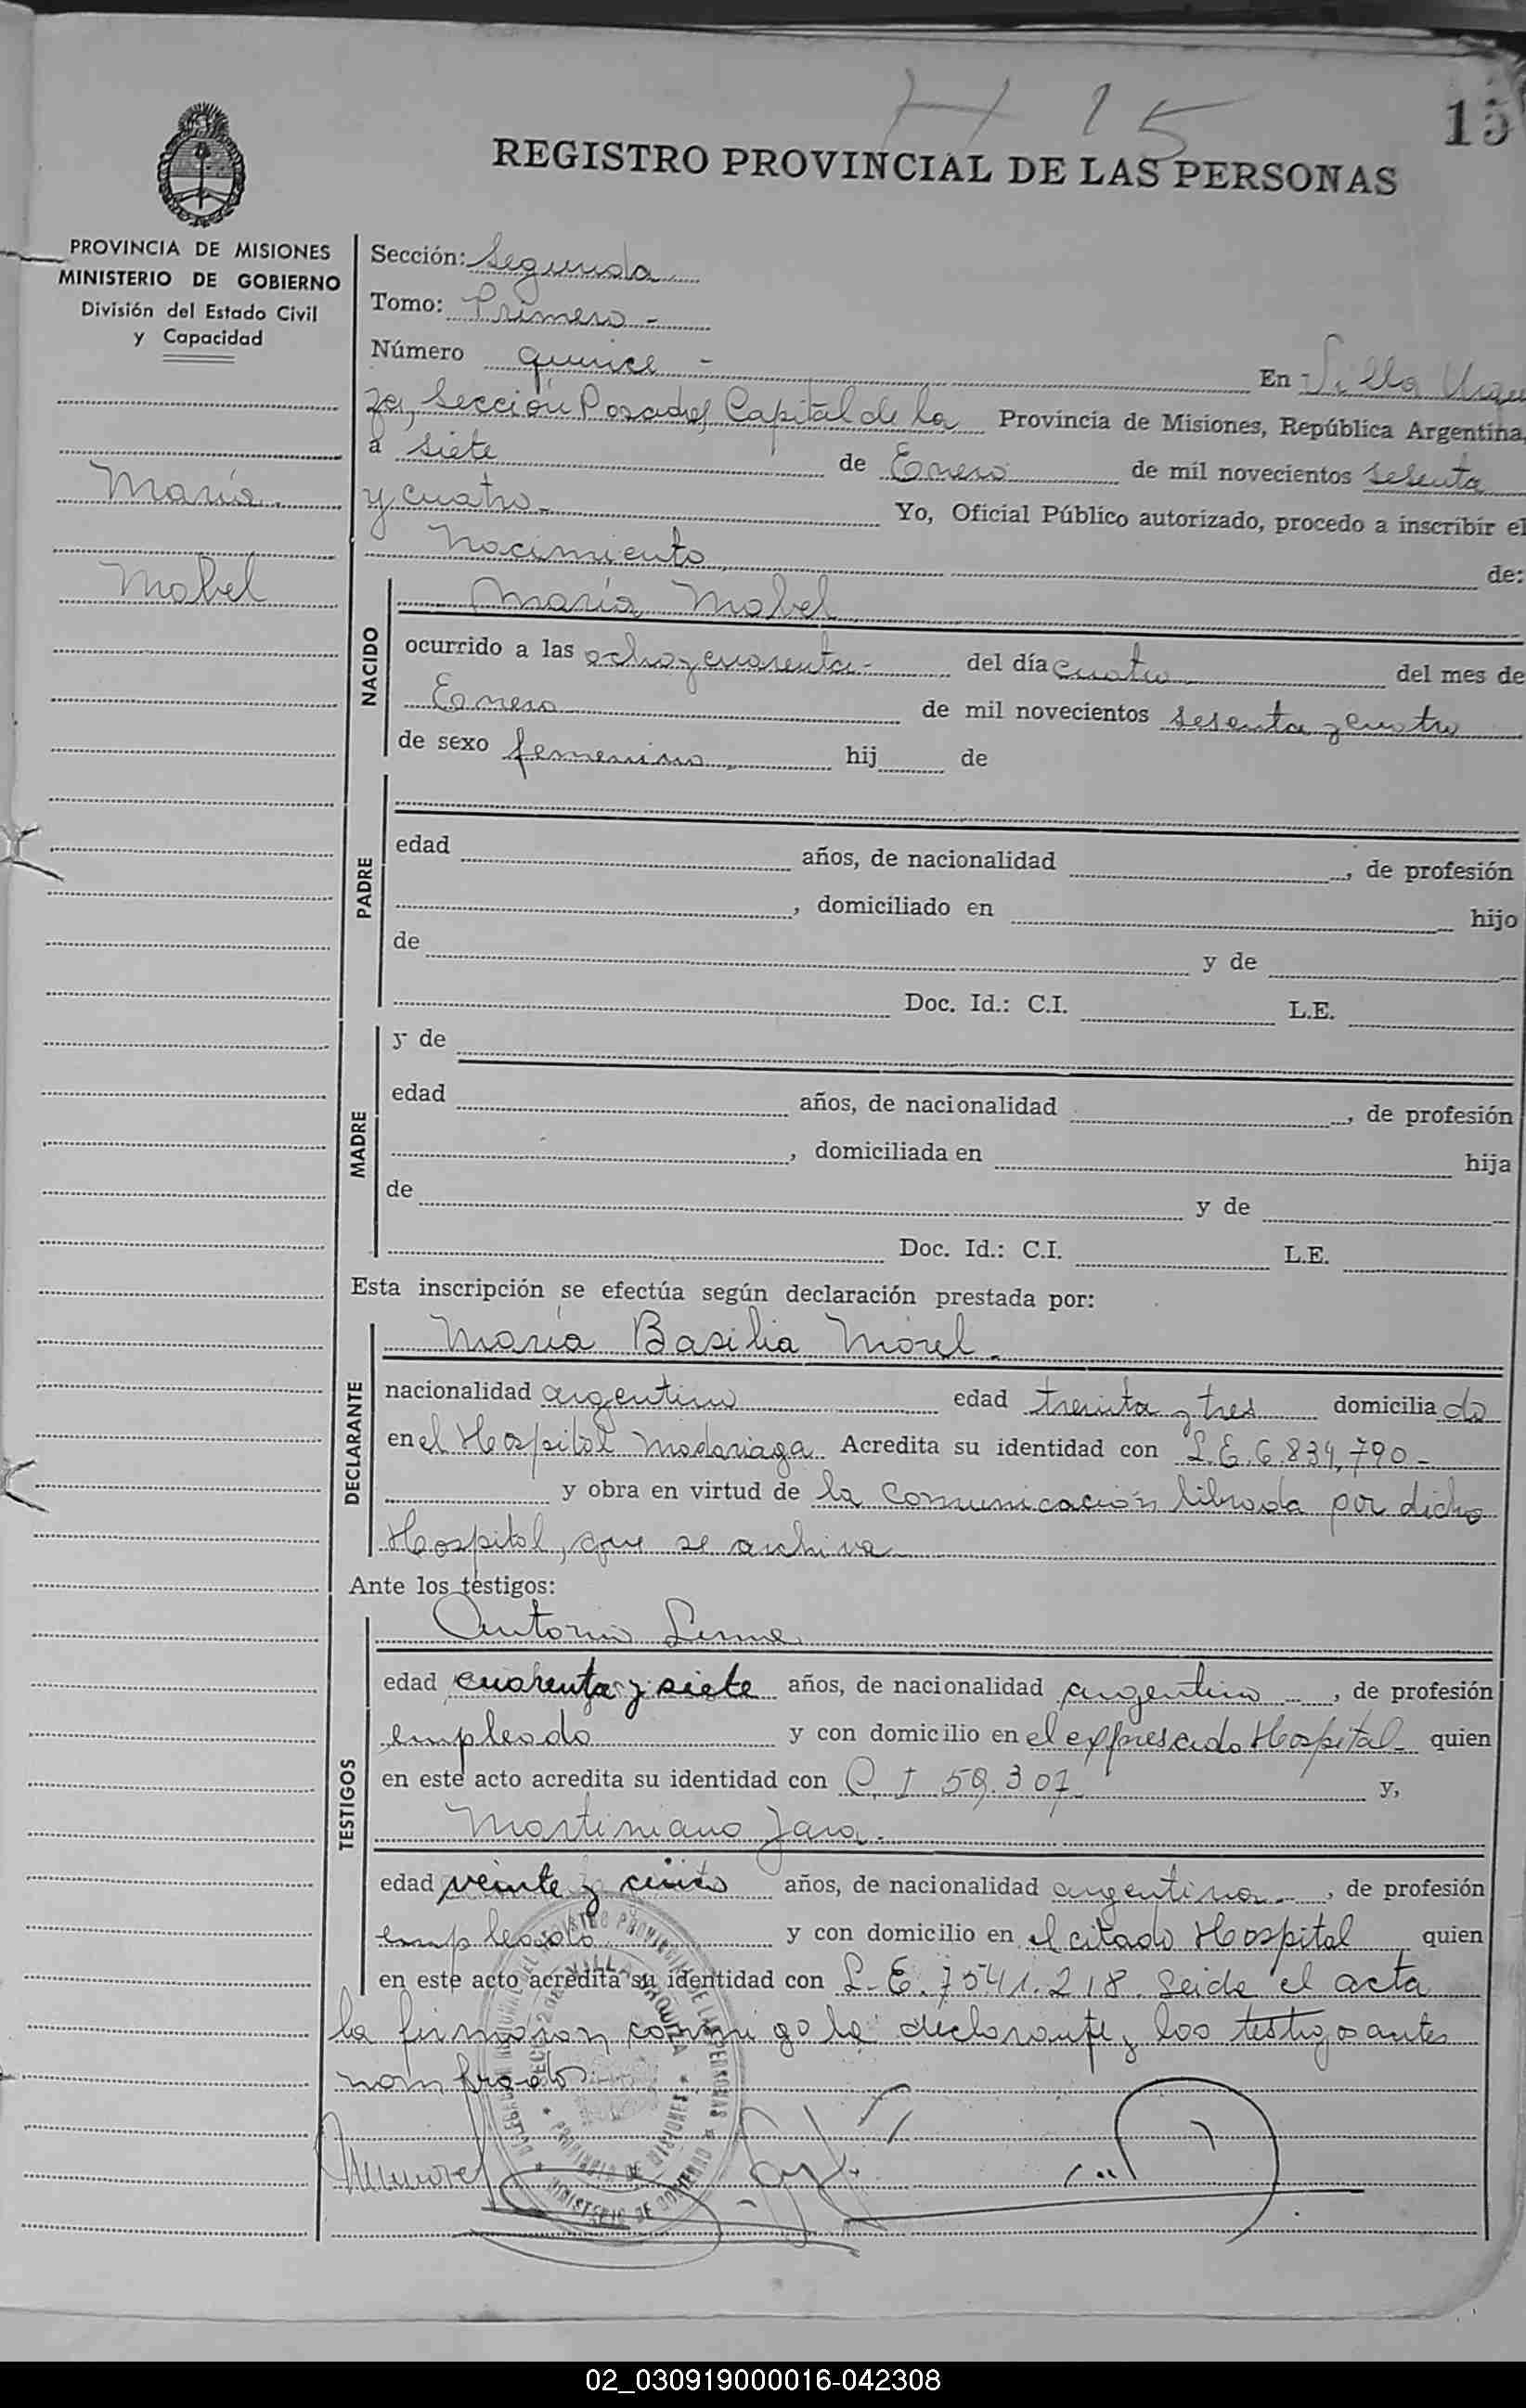 H 15
15
REGISTRO PROVINCIAL DE LAS PERSONAS
PROVINCIA DE MISIONES
MINISTERIO DE GOBIERNO
División del Estado Civil
y Capacidad
María
Mabel
Sección: Segunda
Tomo: Primero -
Número quince - En Villa Urqui
za, Sección Posadas Capital de la Provincia de Misiones, República Argentina,
a siete de Enero de mil novecientos sesenta
y cuatro - Yo, Oficial Público autorizado, procedo a inscribir el
Nacimiento de:
NACIDO
María Mabel
ocurrido a las ocho y cuarenta - del día cuatro del mes de
Enero de mil novecientos sesenta y cuatro
de sexo femenino hij de
PADRE
edad años, de nacionalidad , de profesión
, domiciliado en hijo
de y de
Doc. Id.: C.I. L.E.
MADRE
y de
edad años, de nacionalidad , de profesión
, domiciliada en hija
de y de
Doc. Id.: C.I. L.E.
Esta inscripción se efectúa según declaración prestada por:
DECLARANTE
María Basilia Morel -
nacionalidad argentina edad treinta y tres domicilia da
en el Hospital Madariaga Acredita su identidad con L.E. 6.834.790 -
y obra en virtud de la comunicación librada por dicho
Hospital, que se archiva
Ante los testigos:
TESTIGOS
Antonio
edad cuarenta y siete años, de nacionalidad argentino , de profesión
empleado y con domicilio en el expresado Hospital - quien
en este acto acredita su identidad con C. I 59.307 - y,
Martiniano Jara -
edad veinte y cinco años, de nacionalidad argentina - , de profesión
empleado y con domicilio en el citado Hospital quien
en este acto acredita su identidad con L.E. 7541.218. Leida el acta
la firmaron conmigo la declarante y los testigos antes
nombrados
MMorel
REGISTRO PROVINCIAL DE LAS PERSONAS
VILLA URQUIZA
PROVINCIA DE MISIONES
MINISTERIO DE GOBIERNO
02_030919000016-042308